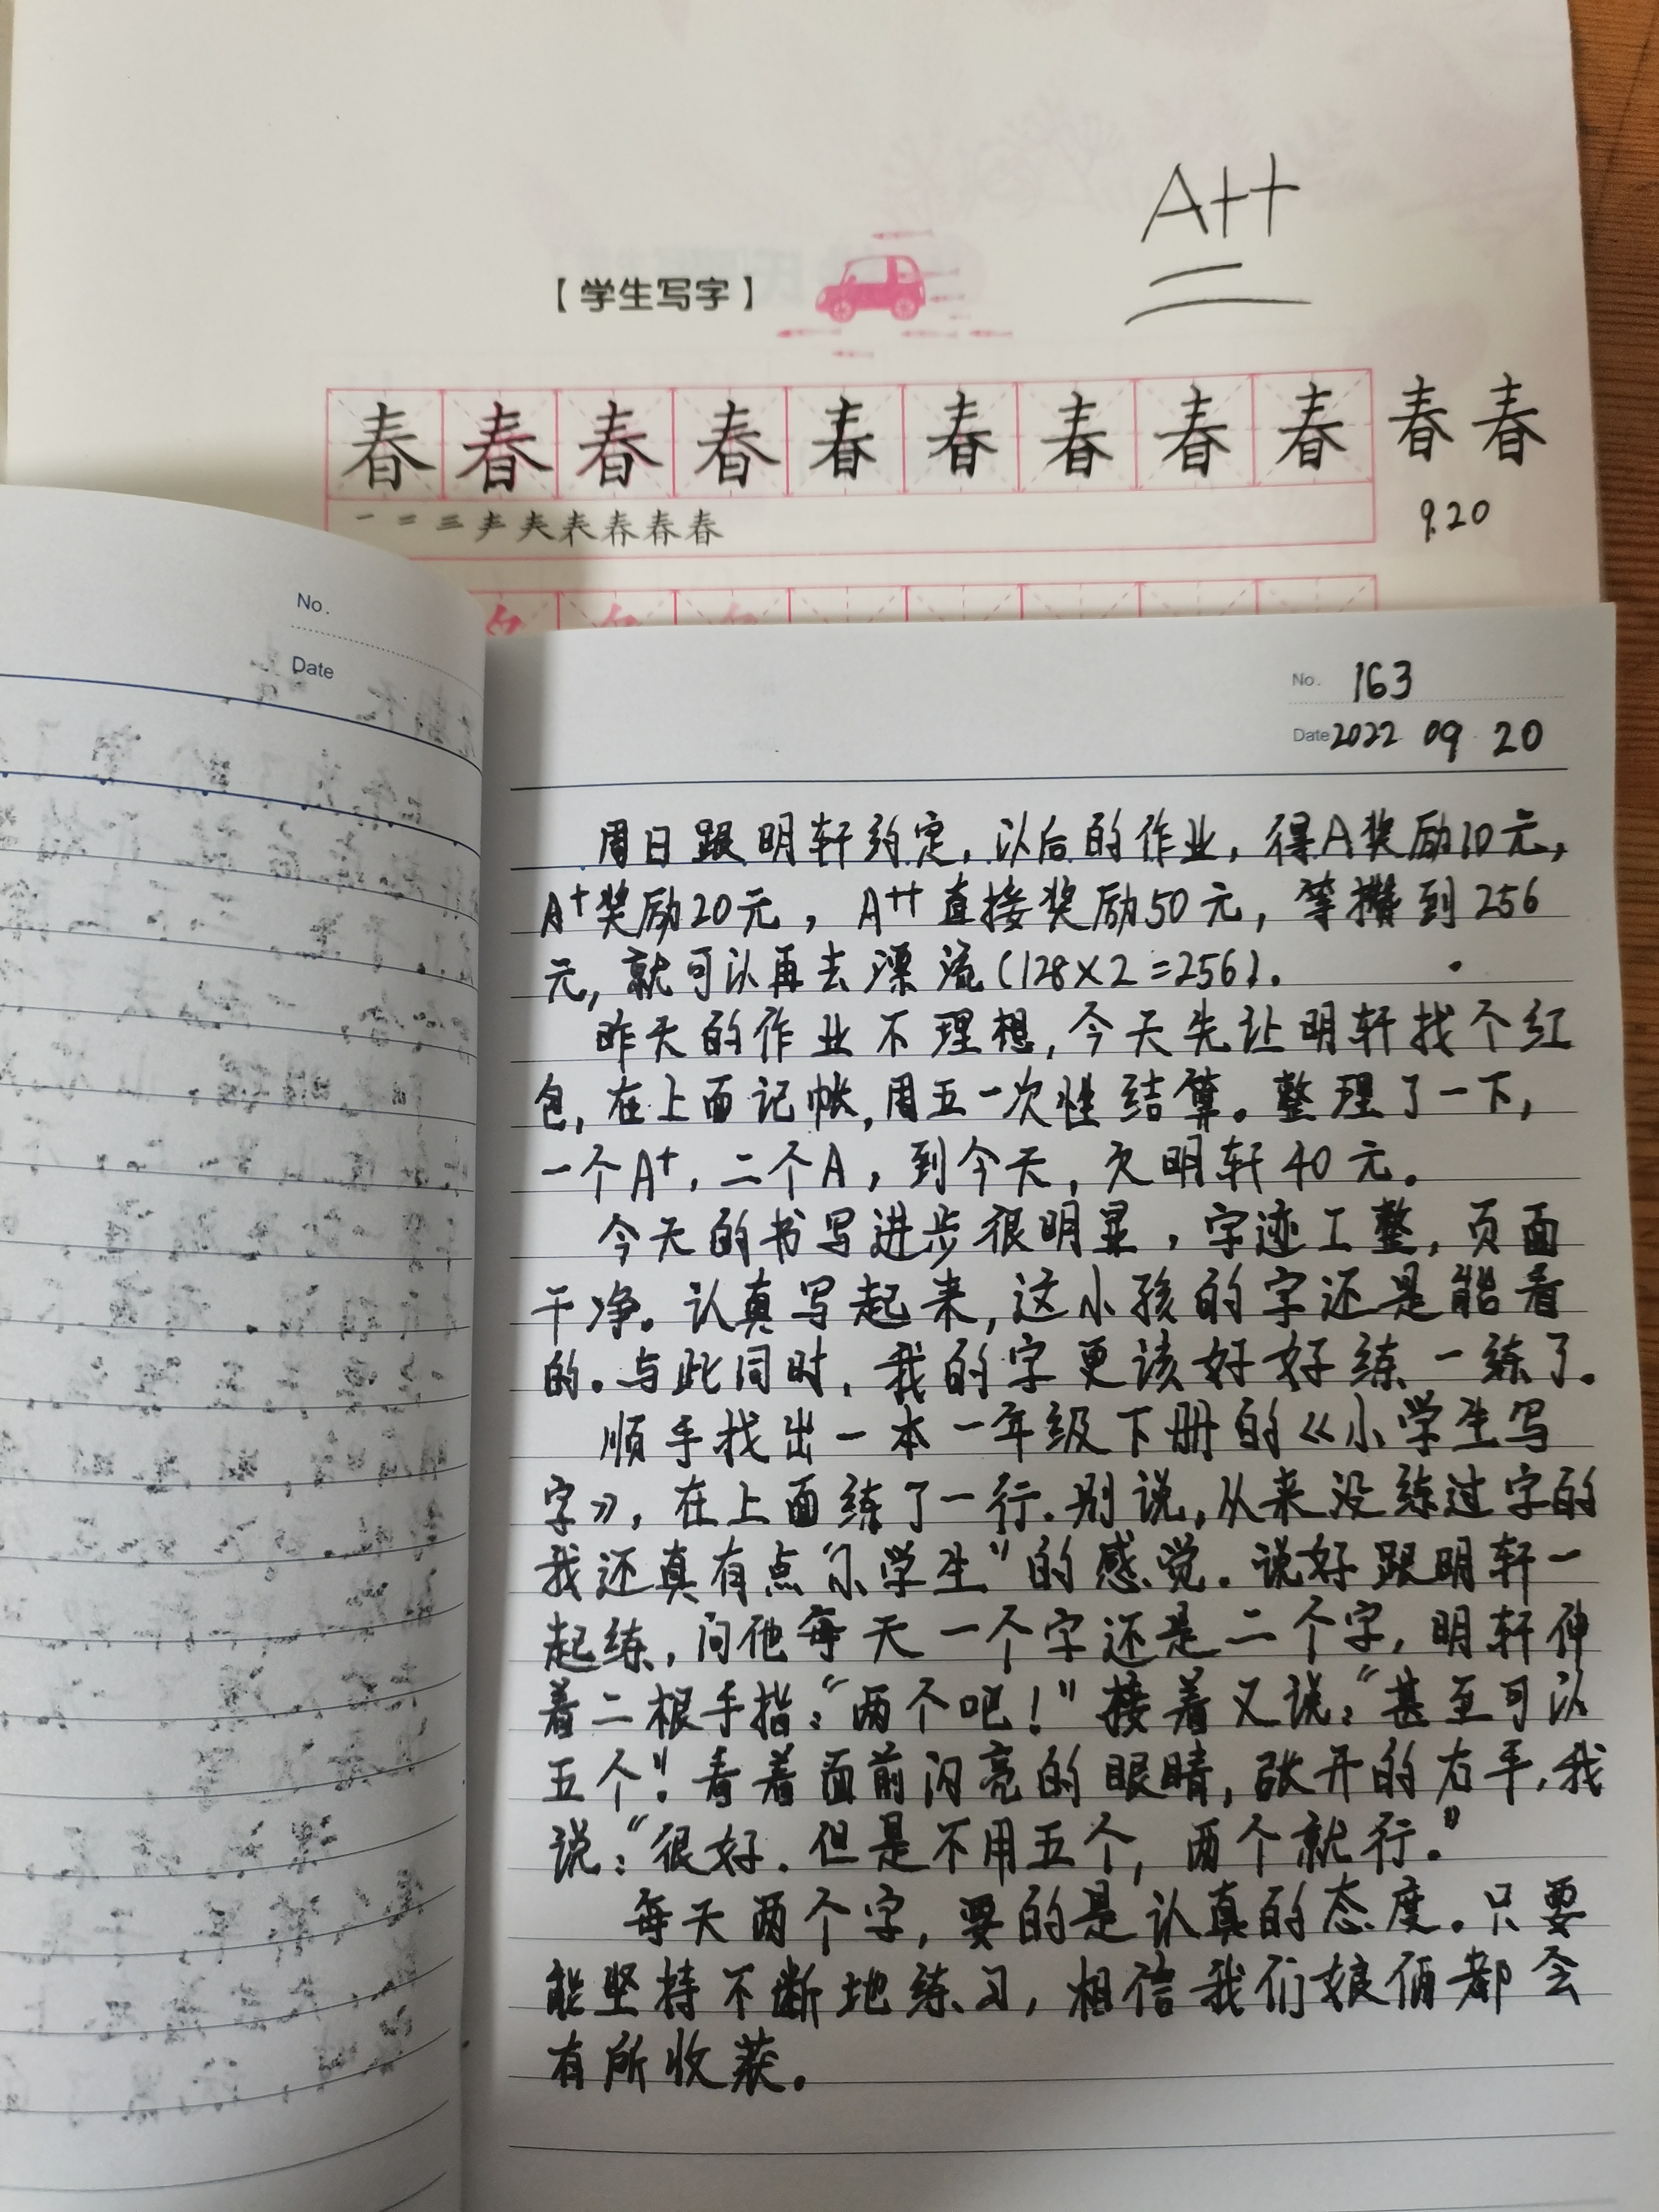 A++
【学生写字】
春春春春春春春春春春春
一 二 三 声 夫 表 春 春 春
9.20
No.
Date
No. 163
Date 2022 09 20
周日跟明轩约定，以后的作业，得A奖励10元，
A+奖励20元，A++直接奖励50元，等攒到256
元，就可以再去漂流（128×2=256）.
昨天的作业不理想，今天先让明轩找个红
包，在上面记帐，周五一次性结算。整理了一下，
一个A+，二个A，到今天，欠明轩40元。
今天的书写进步很明显，字迹工整，页面
干净。认真写起来，这小孩的字还是能看
的。与此同时，我的字更该好好练一练了。
顺手找出一本一年级下册的《小学生写
字》，在上面练了一行.别说,从来没练过字的
我还真有点“小学生”的感觉.说好跟明轩一
起练，问他每天一个字还是二个字，明轩伸
着二根手指：“两个吧！”接着又说：“甚至可以
五个”.看着面前闪亮的眼睛，张开的右手，我
说：“很好.但是不用五个，两个就行。”
每天两个字，要的是认真的态度。只要
能坚持不断地练习，相信我们娘俩都会
有所收获。